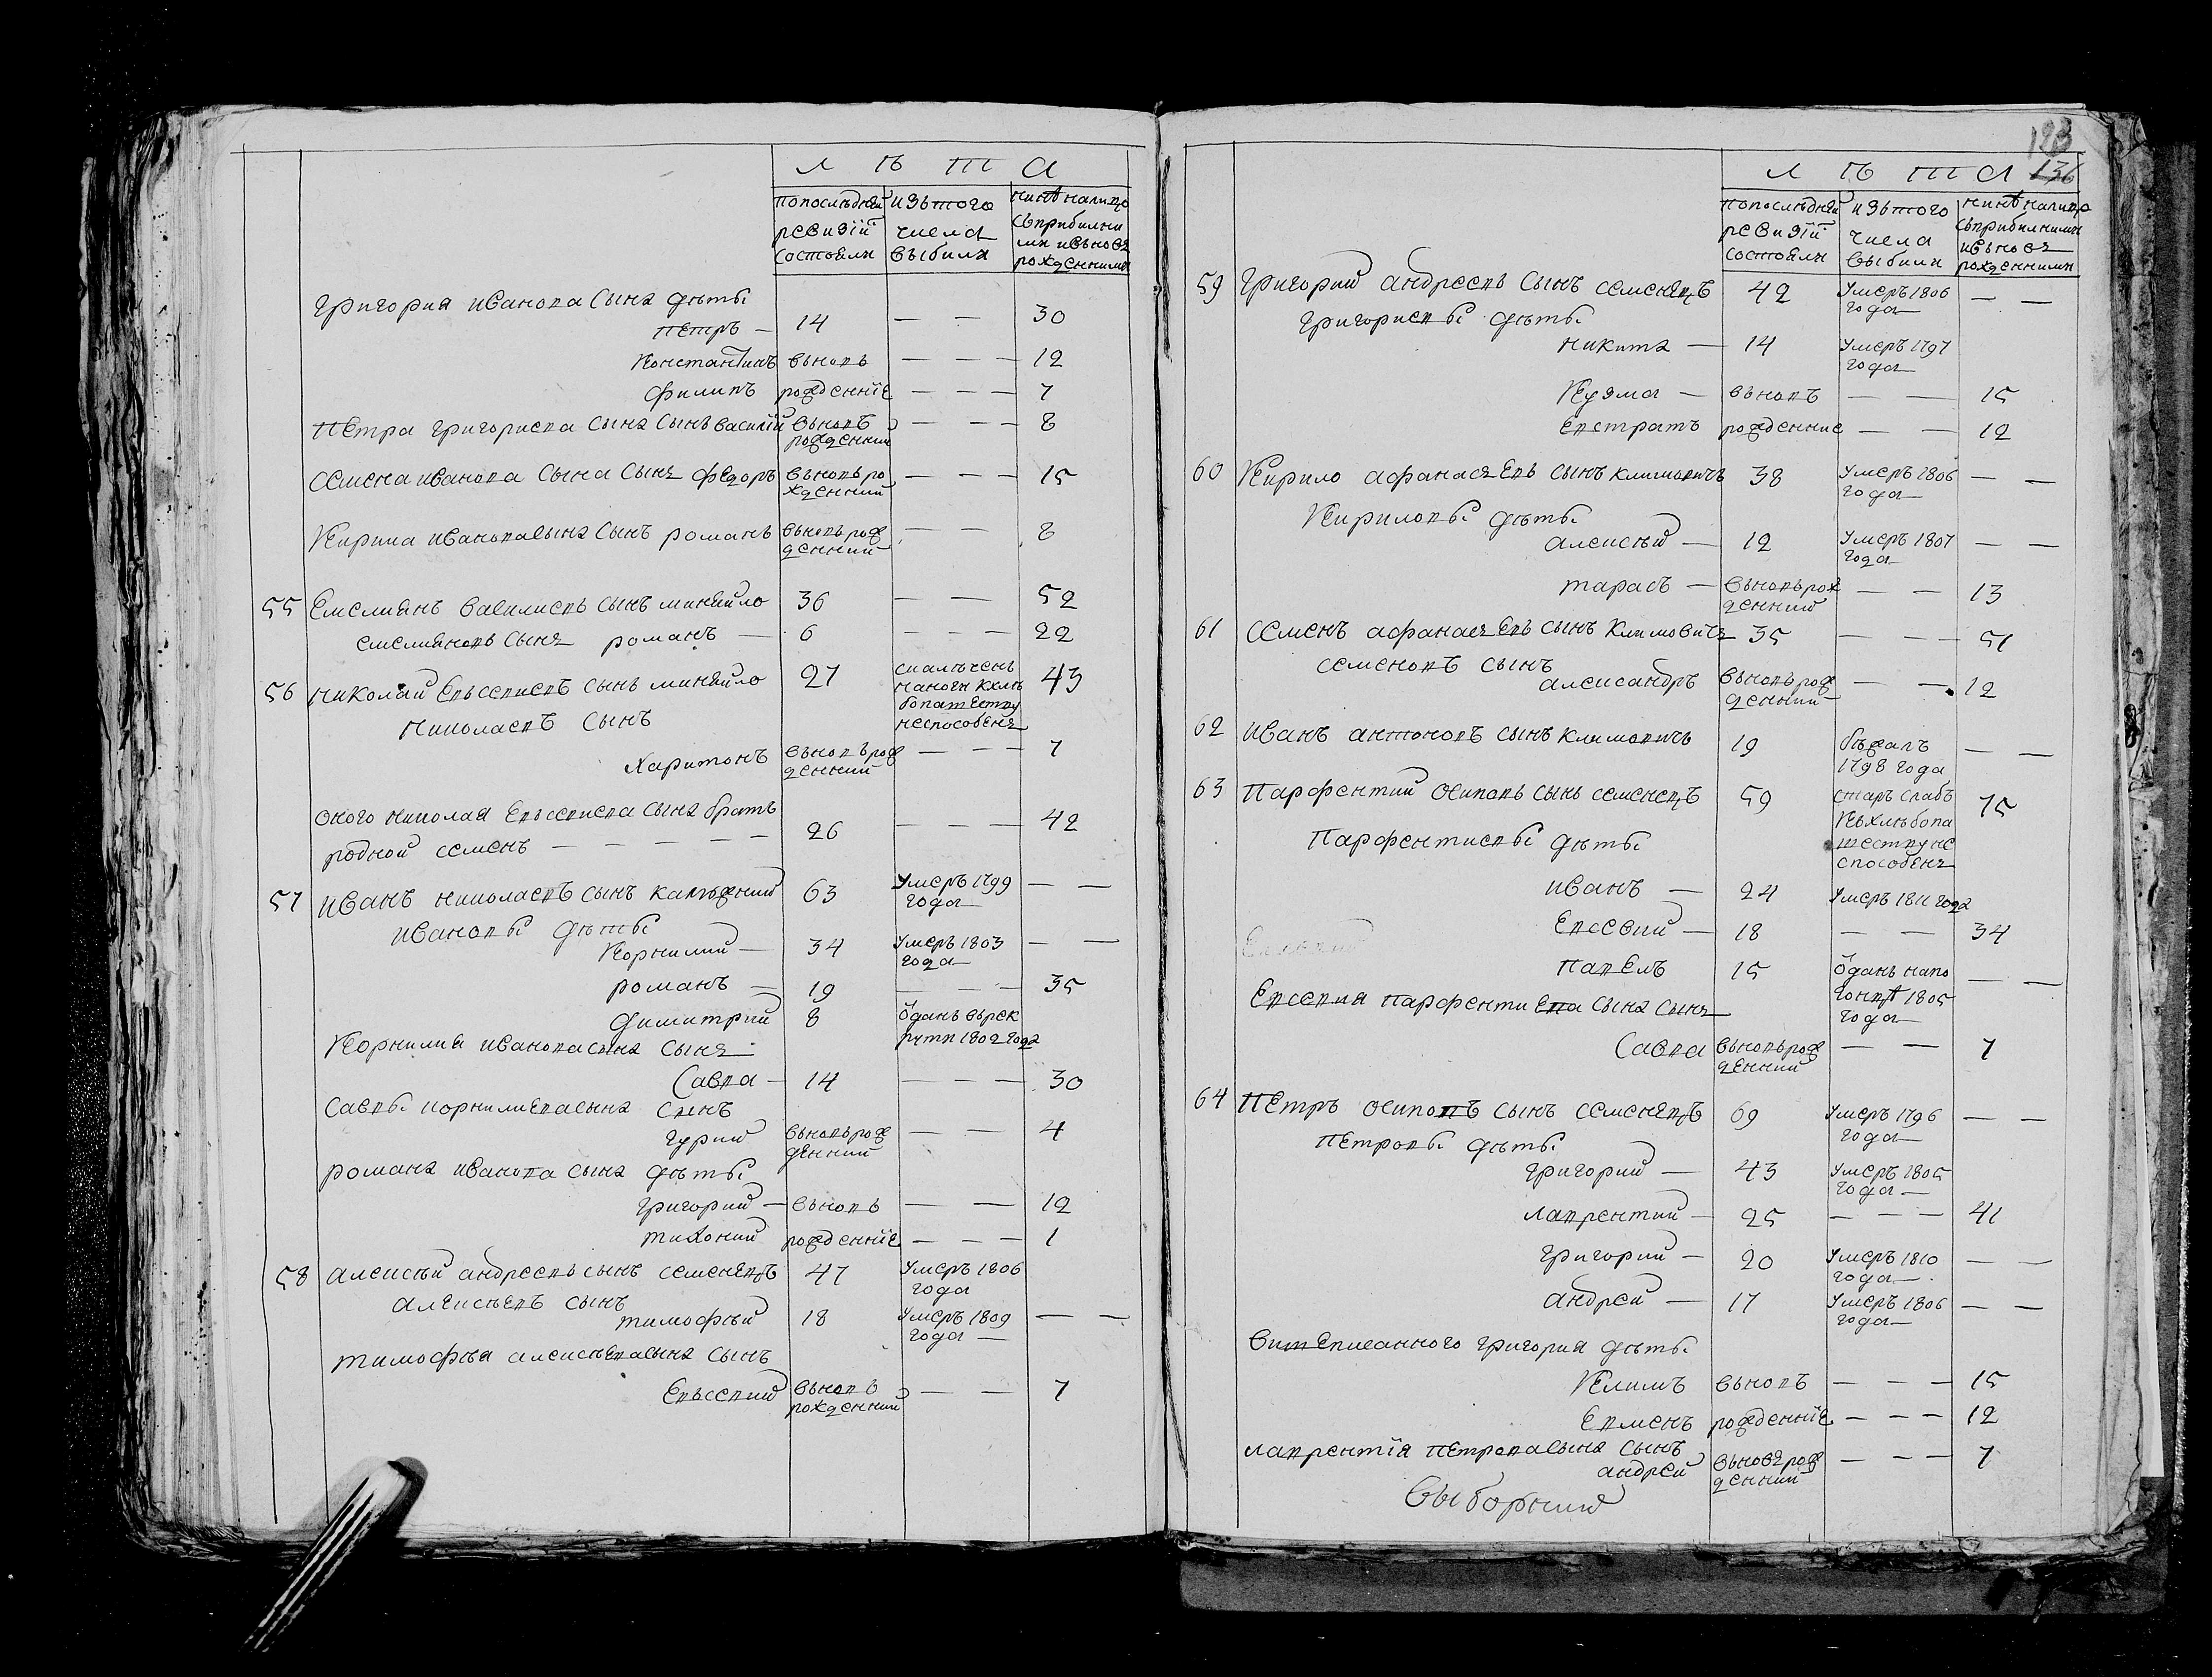 Л Ѣ Т А
попослѣдней ревизїй состояли
изътого числа выбыли
нинѣ налицо съприбилими ивъновъ рожденними
Григория иванова сына дѣты
Петръ — 14 — — 30
Константинъ вьновь — — — 12
Филипъ рожденніе — — — 7
Петра григориева сына сынъ василій вьновь рожденний — — — 8
Семена иванова сына сынъ федоръ вьновь рожденний — — — 15
Кирила иванова сына сынъ романъ вьновь рожденний — — 8
55 Емелианъ василиевь сынъ минайло 36 — — 52
емелиановь сынъ романъ — 6 — — — 22
56 Николай Евьсевиевъ сынъ минайло 27 скалѣченъ наноги кхлѣбопашеству неспособенъ 43
Николаевъ сынъ
Харитонъ вьновьрожденний — — — 7
оного николая Евьсевиева сына брать
родной семенъ — — — — — 26 — — — 42
57 Иванъ николаевъ сынъ калѣжний 63 умеръ 1799 года — —
ивановы дѣты
Корнилий — 34 умеръ 1803 года — —
романъ — 19 — — — 35
димитрий 8 ѿданъ вьрекрути 1802 года
Корнилия иванова сына сынъ
Савва — 14 — — — 30
Саввы корнилиева сына сынъ
гурий вьновьрожденний — — 4
романа иванова сына дѣты
григорий — вьновь — — 12
тихоний рожденніе — — — 1
58 алексѣй андреевь сынъ семенецъ 47 умеръ 1806 года
алексѣевъ сынъ
тимофѣй 18 умеръ 1809 года — — —
тимофѣя алексѣева сына сынъ
Евьсевий вьновь рожденний — — 7
123
136
Л Ѣ Т А
попослѣдней ревизїй состояли
изътого числа выбили
нинѣ налицо съприбилими ивъновъ рожденними
59 Григорий андреевь сынъ семенецъ 42 умеръ 1806 года — —
Григориевы дѣты
никита — 14 умеръ 1797 года
Кузма — вьновъ — — 15
Евстратъ рожденние — — 12
60 Кирило афанасиевь сынъ климовичъ 38 умеръ 1806 года — —
Кириловы дѣты
алексѣй — 12 умеръ 1807 года — —
тарасъ — вьновьрожденний — — 13
61 Семенъ афанасиевь сынъ климовичъ 35 — — — 51
семеновъ сынъ
александръ вьновьрожденний — — 12
62 Иванъ антоновъ сынъ климовичъ 19 бѣжалъ 1798 года — —
63 Парфентий осиповь сынь семенецъ 59 старъ слабъ къхлѣбопашеству неспособенъ 75
Парфентиевы дѣты
иванъ — 24 умеръ 1811 года
Евсевий — 18 — — 34
Павелъ 15 ѿданъ напогонцѣ 1805 года — —
Евсевия парфентиева сына сынъ
Савва вьновьрожденний — — 7
64 Петръ осиповъ сынъ семенецъ 69 умеръ 1796 года — —
Петровы дѣты
григорий — 43 умеръ 1805 года —
лаврентий — 25 — — — 41
григорий — 20 умеръ 1810 года — — —
андрей — 17 умеръ 1806 года — —
вишеписанного григория дѣты
Климъ вьновъ — — — 15
Евменъ рожденніе — — — 12
лаврентїя петрова сына сынъ
андрей вьновърожденний — — — 7
Выборний